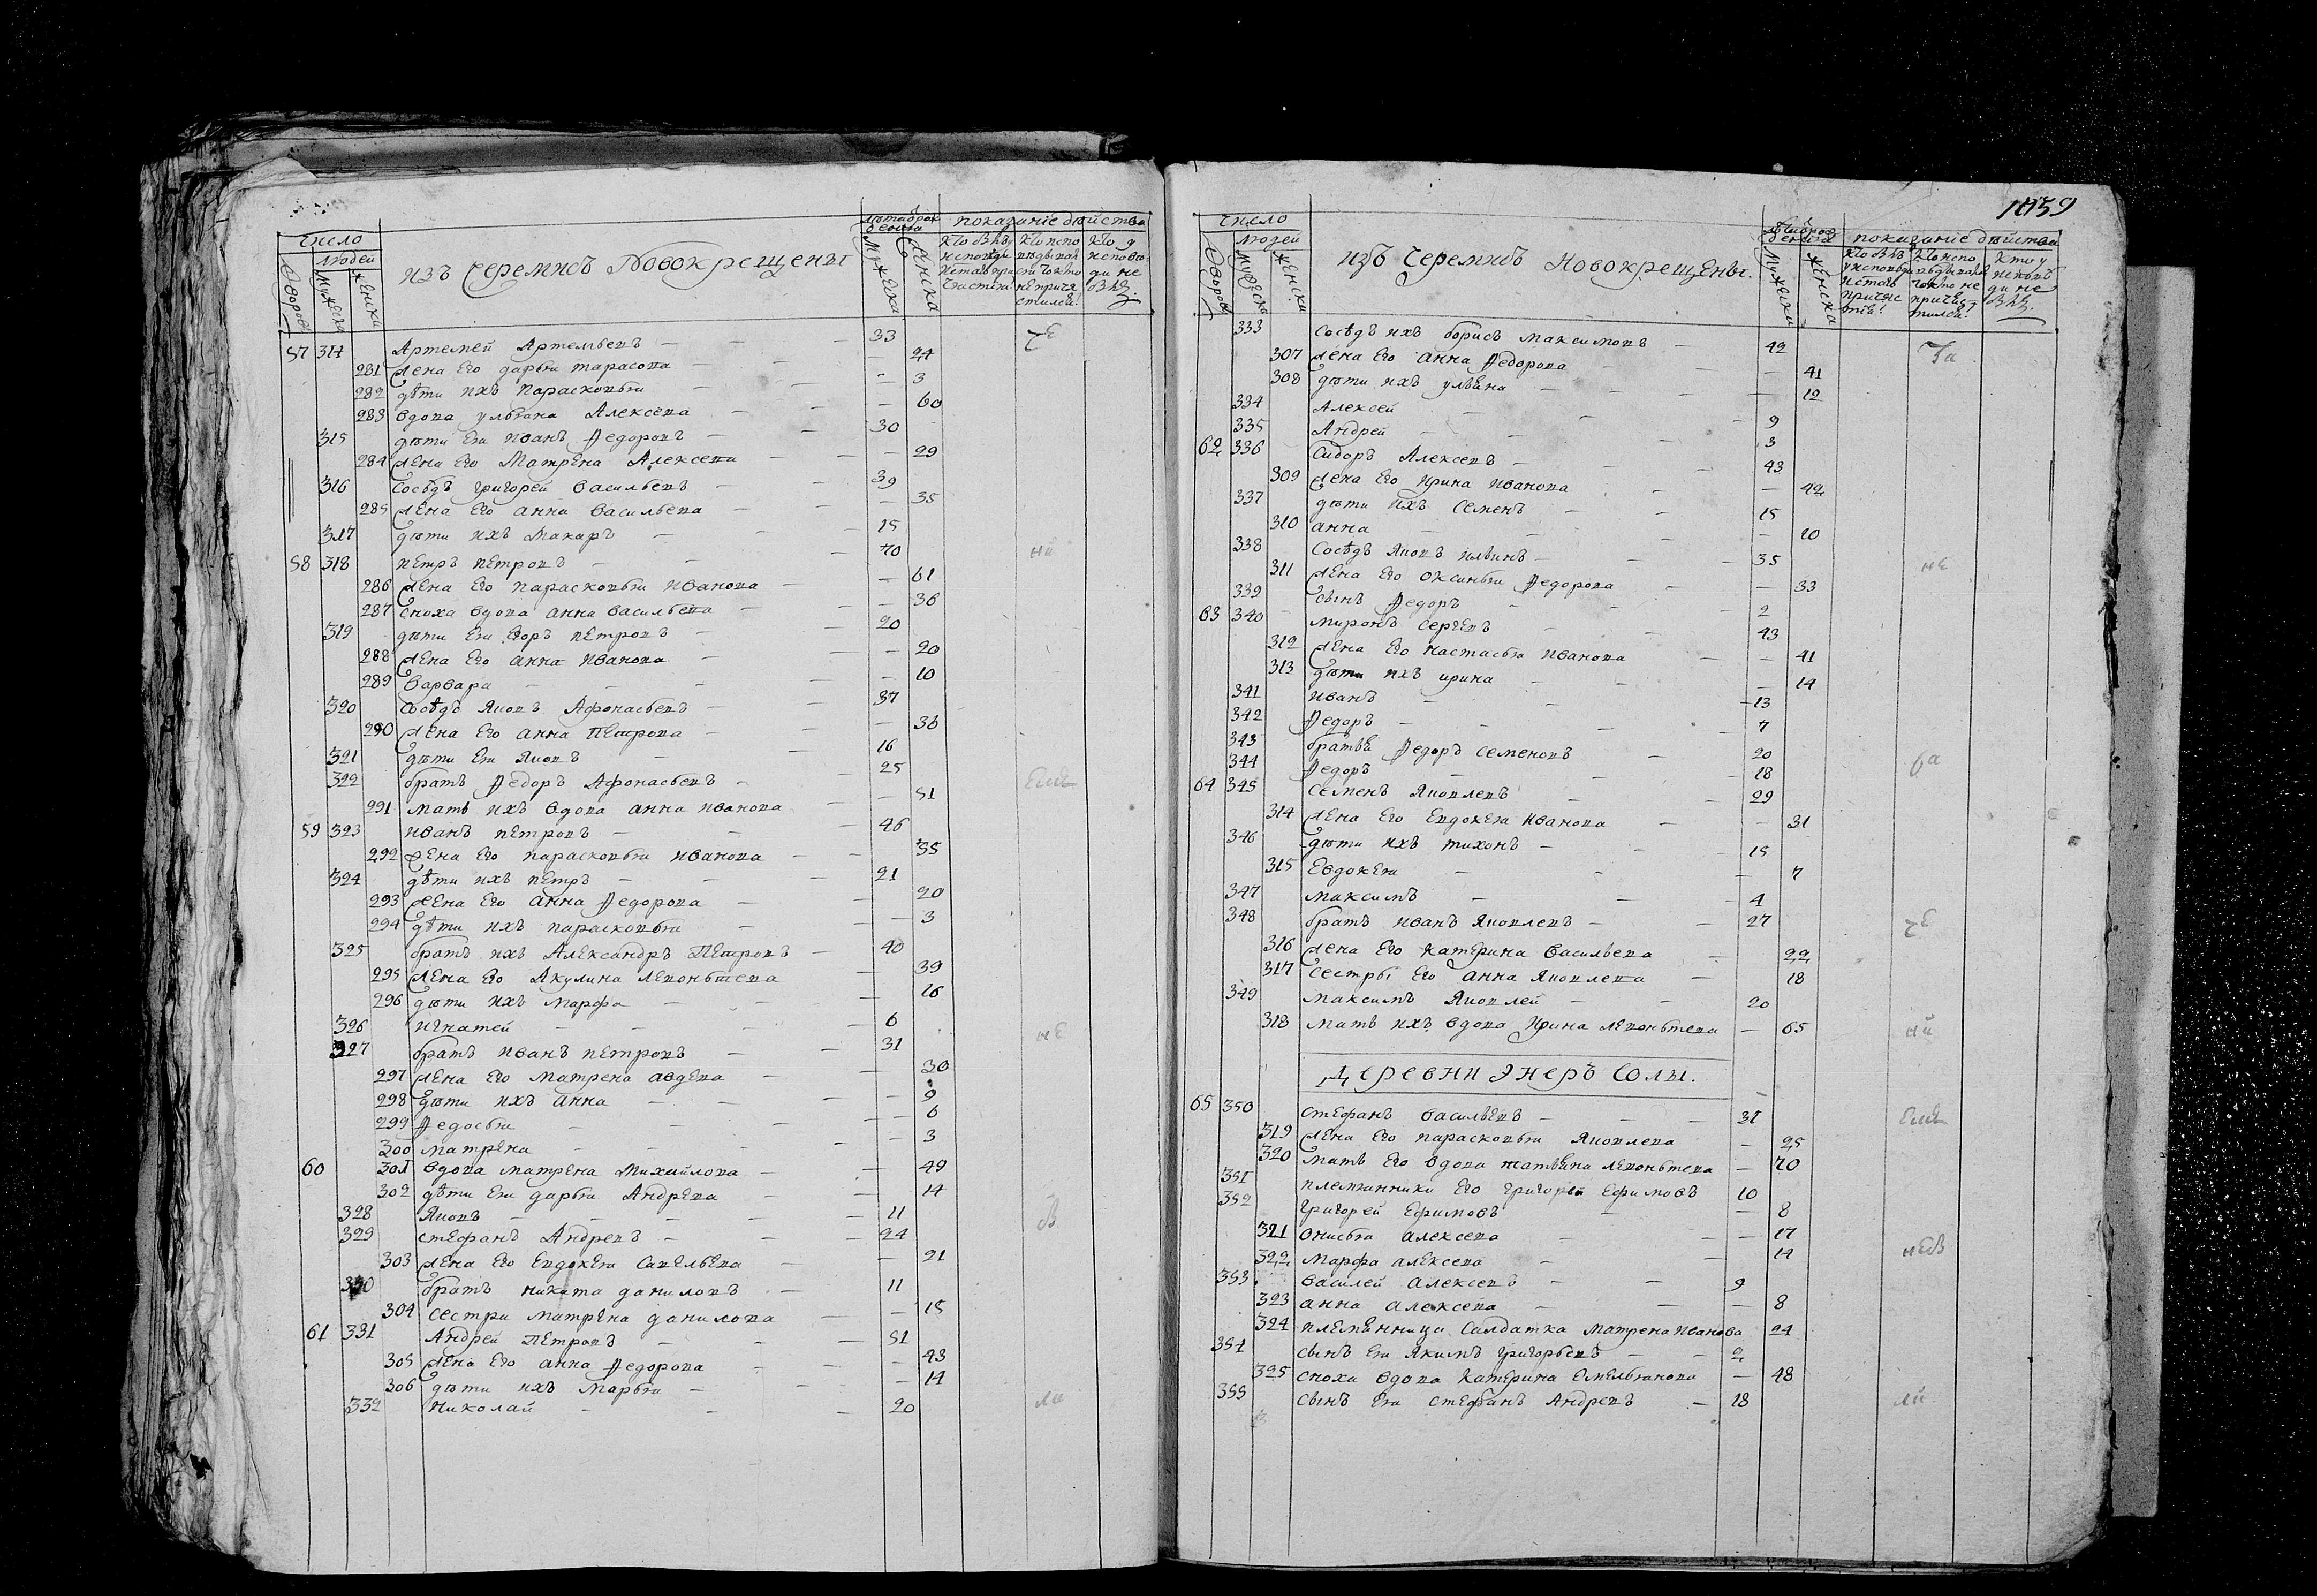 число
людей
Дворовъ
Мужеска
женска
изъ черемисъ Новокрещены
Мужеска
женска
показаніе действа
57 314 Артемей Артемьевъ — 33
281 жена Его дарья тарасова — 24
282 дѣти ихъ параскопья — 3
283 вдова ульяна Алексева — 60
315 дѣти Ея Иванъ Федоровъ — 30
284 жена Его Матрена Алексева — 29
316 сосѣдъ григорей васильевъ — 39
285 жена Его анна васильева — 35
317 дѣти ихъ Макаръ — 15
58 318 петръ петровъ — 70
286 жена Его параскопья иванова — 61
287 сноха вдова анна васильева — 36
319 дѣти Ея Егоръ петровъ — 20
288 жена Его анна иванова — 20
289 варвара — 10
320 сосѣдъ Яковъ Афонасьевъ — 37
290 жена Его анна Петрова — 36
321 дѣти Ея Яковъ — 16
322 братъ Федоръ Афонасьевъ — 25
291 мать ихъ вдова анна иванова — 51
59 323 иванъ петровъ — 46
292 жена Его параскопья иванова — 35
324 дѣти ихъ петръ — 21
293 жена Его анна Федорова — 20
294 дѣти ихъ параскопья — 3
325 братъ ихъ Александръ Петровъ — 40
295 жена Его Акулина леонтьева — 39
296 дѣти ихъ марфа — 16
326 игнатей — 6
327 братъ иванъ петровъ — 31
297 жена Его матрена авдева — 30
298 дѣти ихъ анна — 9
299 Федосья — 6
300 матрена — 3
60 301 вдова матрена михайлова — 49
302 дѣти Ея дарья Андрева — 14
328 Яковъ — 11
329 стефанъ Андревъ — 24
303 жена Его Евдокея савельева — 21
330 братъ никита даниловъ — 11
304 сестра матрена данилова — 15
61 331 Андрей Петровъ — 51
305 жена Его анна Федорова — 43
306 дѣти ихъ марья — 14
332 Николай — 20
1039
число
людей
Дворовъ
мужеска
женска
изъ черемисъ новокрещены.
Мужеска
женска
показаніе действа
333 сосѣдъ ихъ борисъ максимовъ — 42
307 жена Его анна Федорова — 41
308 дѣти ихъ ульяна — 12
334 Алексей — 9
335 Андрей — 3
62 336 Сидоръ Алексевъ — 43
309 жена Его ирина иванова — 42
337 дѣти ихъ семенъ — 15
310 анна — 10
338 сосѣдъ Яковъ ильинъ — 35
311 жена Его оксинья Федорова — 33
339 сынъ Федоръ — 2
63 340 миронъ сергевъ — 43
312 жена Его настасья иванова — 41
313 дѣти ихъ ирина — 14
341 иванъ — 13
342 Федоръ — 7
343 братья Федоръ семеновъ — 20
344 Федоръ — 18
64 345 семенъ Яковлевъ — 29
314 жена Его Евдокея иванова — 31
346 дѣти ихъ тихонъ — 15
315 Евдокея — 7
347 максимъ — 4
348 братъ иванъ Яковлевъ — 27
316 жена Его катерина васильева — 22
317 сестры Его анна Яковлева — 18
349 максимъ Яковлей — 20
318 мать ихъ вдова ирина леонтьева — 65
Деревни Энеръ Солы.
65 350 стефанъ васильевъ — 31
319 жена Его параскопья Яковлева — 25
320 мать Его вдова татьяна леонтьева — 70
351 племянники Его григорей Ефимовъ 10
352 григорей Ефимовъ — 8
321 онисья алексева — 17
322 марфа алексева — 14
353 василей алексевъ — 9
323 анна алексева — 8
324 племянница салдатка матрена иванова 24
354 сынъ Ея Якимъ григорьевъ — 2
325 сноха вдова катерина Емельянова — 48
355 сынъ Ея стефанъ Андревъ — 18